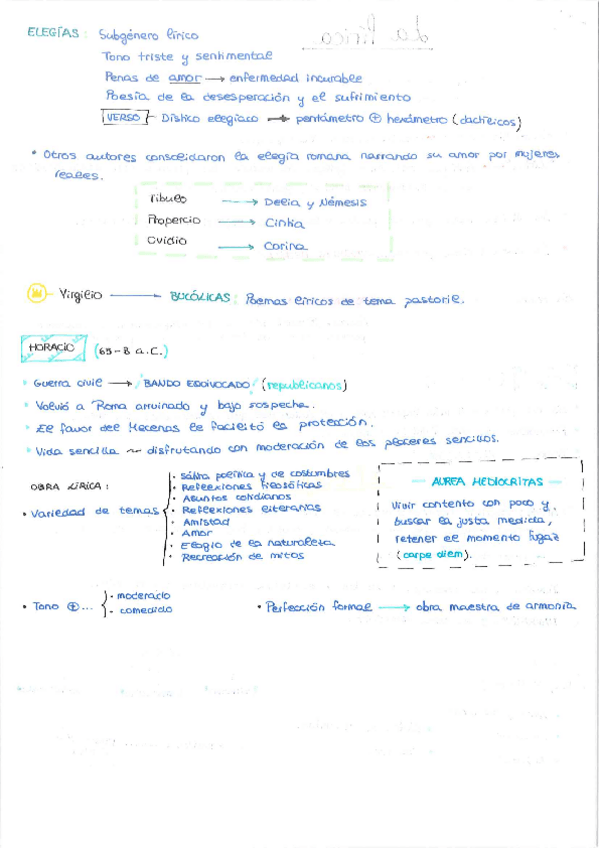 ELEGÍAS: Subgénero lírico
Tono triste y sentimental
Penas de amor → enfermedad incurable
Poesía de la desesperación y el sufrimiento
VERSO - Dístico elegíaco → pentámetro + hexámetro (dactílicos)
• Otros autores consolidaron la elegía romana narrando su amor por mujeres
reales.
Tibulo → Delia y Némesis
Propercio → Cintia
Ovidio → Corina
Virgilio — BUCÓLICAS: Poemas líricos de tema pastoril.
HORACIO (65-8 a.C.)
• Guerra civil → BANDO EQUIVOCADO (republicanos)
• Volvió a Roma arruinado y bajo sospecha.
• El favor del Mecenas le facilitó la protección.
• Vida sencilla ~ disfrutando con moderación de los placeres sencillos.
OBRA LÍRICA:
• Variedad de temas
· Sátira política y de costumbres
· Reflexiones filosóficas
· Asuntos cotidianos
· Reflexiones literarias
· Amistad
· Amor
· Elogio de la naturaleza
· Recreación de mitos
— AUREA MEDIOCRITAS —
Vivir contento con poco y
buscar la justa medida,
retener el momento fugaz
(carpe diem).
• Tono + ...
· moderado
· comedido
• Perfección formal → obra maestra de armonía
La lírica